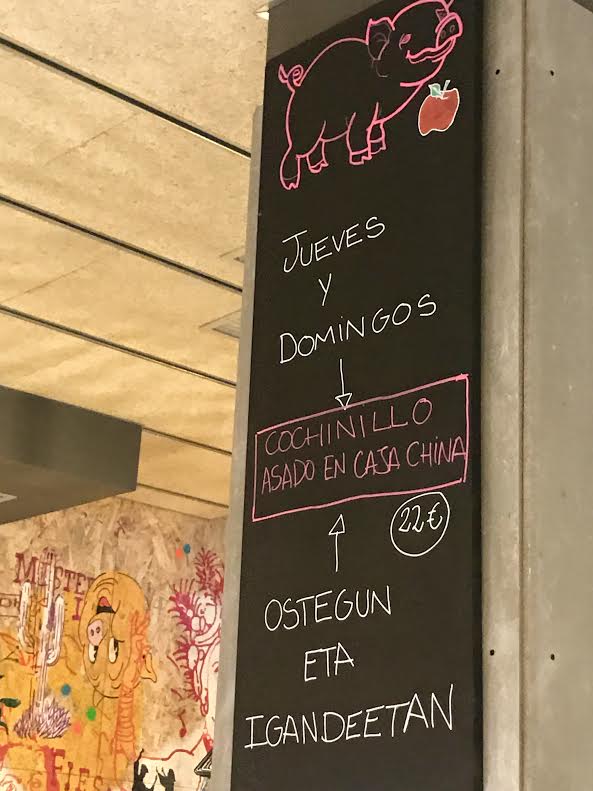 JUEVES
Y
DOMINGOS
COCHINILLO
ASADO EN CAJA CHINA
22 €
OSTEGUN
ETA
IGANDEETAN